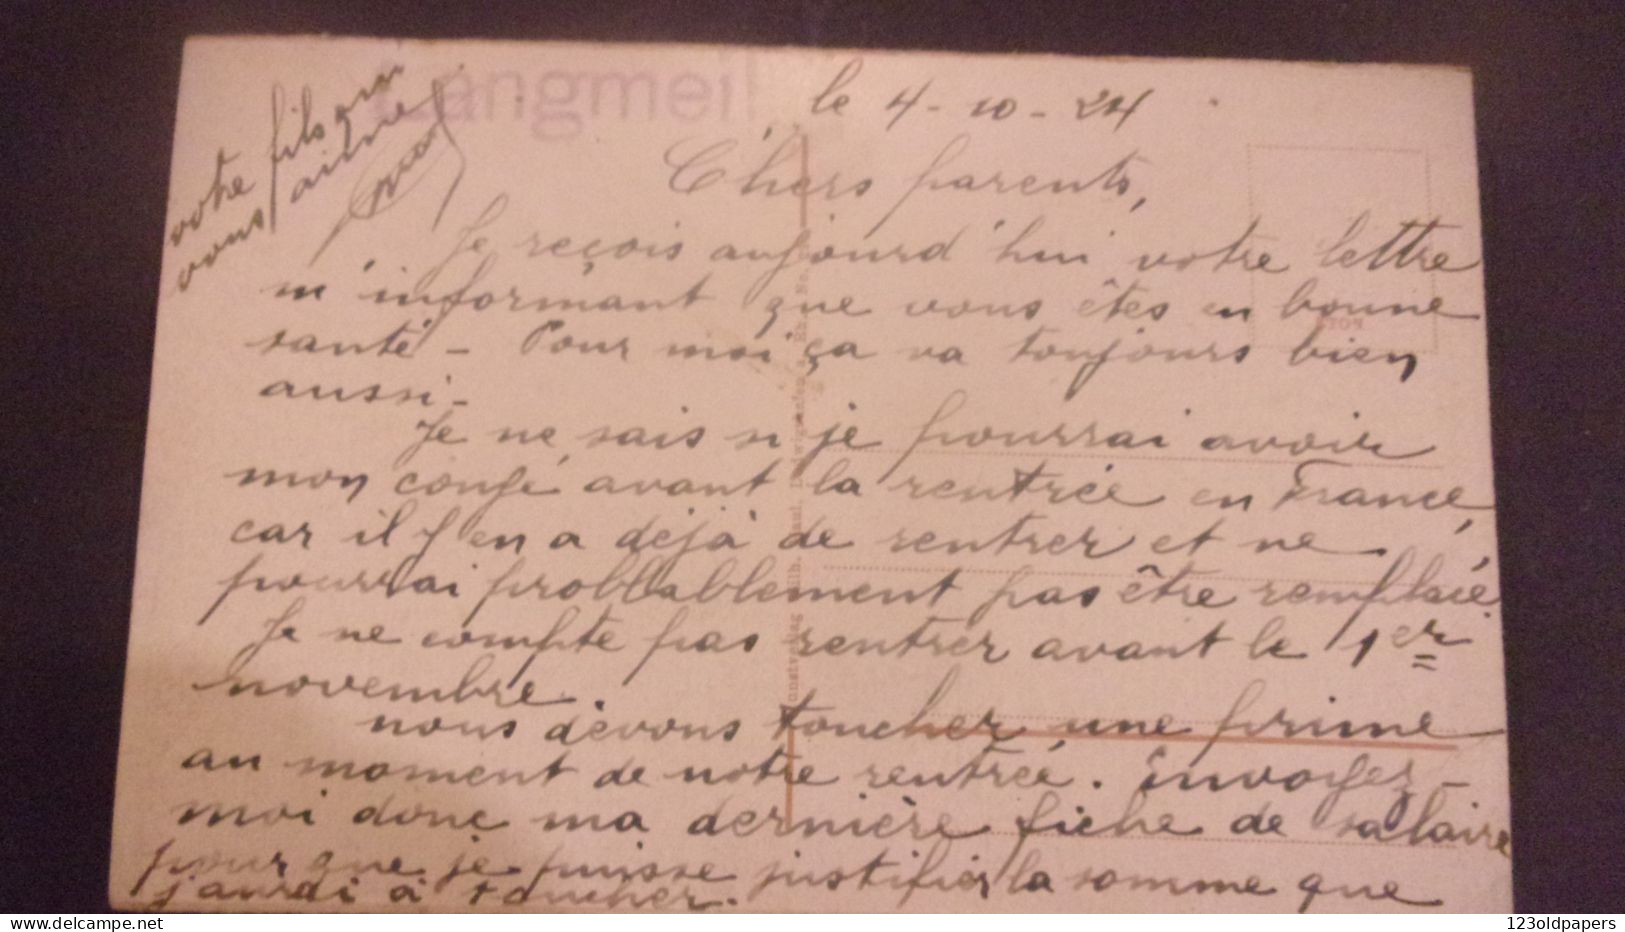 Langmeil
le 4-10-24
Chers parents,
Je reçois aujourd'hui votre lettre
m'informant que vous êtes en bonne
santé - Pour moi ça va toujours bien
aussi -
Je ne sais si je pourrai avoir
mon congé avant la rentrée en France,
car il y en a déjà de rentrer et ne
pourrai probbablement pas être remplacé.
Je ne compte pas rentrer avant le 1er
novembre.
nous devons toucher une prime
au moment de notre rentrée. Envoyez-
moi donc ma dernière fiche de salaire
pour que je puisse justifier la somme que
j'aurai à toucher.
votre fils qui
vous aime
delcampe.net
123oldpapers